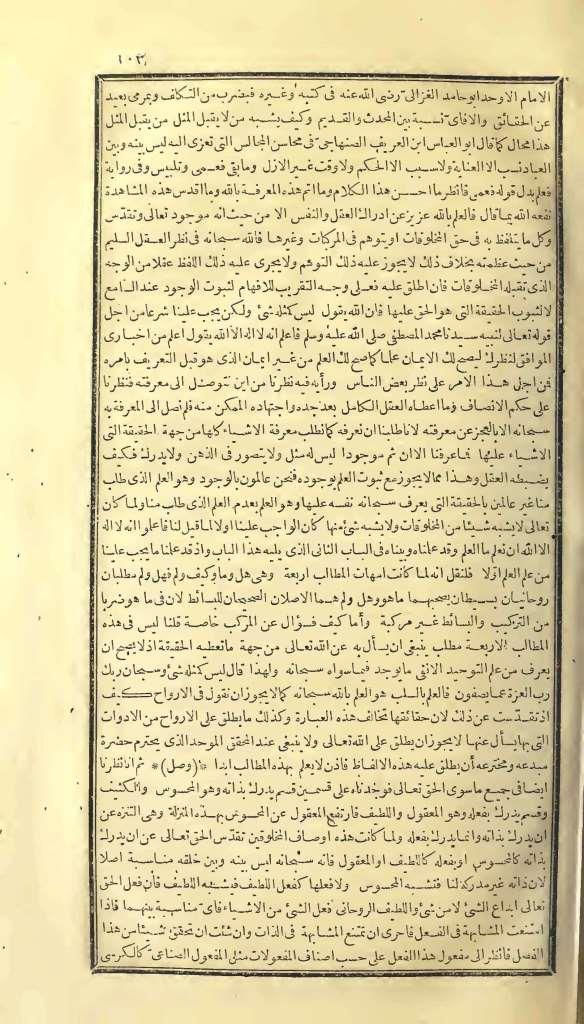 ١٠٣
الامام الاوحد ابو حامد الغزالى رضى الله عنه فى كتبه وغيره فبضرب من التكلف وبمرمى بعيد
عن الحقائق والافاى نسبة بين المحدث والقديم وكيف يشبه من لا يقبل المثل من يقبل المثل
هذا محال كما قال ابو العباس ابن العريف الصنهاجى فى محاسن المجالس التى تعزى اليه ليس بينه وبين
العباد نسب الا العناية ولا سبب الا الحكم ولا وقت غير الازل وما بقى فعمى وتلبيس وفى رواية
فعلم بدل قوله فعمى فانظر ما احسن هذا الكلام وما اتم هذه المعرفة بالله وما اقدس هذه المشاهدة
نفعه الله بما قال فالعلم بالله عزيز عن ادراك العقل والنفس الا من حيث انه موجود تعالى وتقدس
وكل ما يتلفظ به فى حق المخلوقات او يتوهم فى المركبات وغيرها فالله سبحانه فى نظر العقل السليم
من حيث عظمته بخلاف ذلك لا يجوز عليه ذلك التوهم ولا يجرى عليه ذلك اللفظ عقلا من الوجه
الذى تقبله المخلوقات فان اطلق عليه فعلى وجه التقريب للافهام لثبوت الوجود عند السامع
لا لثبوت الحقيقة التى هو الحق عليها فان الله يقول ليس كمثله شئ ولكن يجب علينا شرعا من اجل
قوله تعالى لنبيه سيدنا محمد المصطفى صلى الله عليه وسلم فاعلم انه لا اله الا الله يقول اعلم من اخبارى
الموافق لنظرك ليصح لك الايمان علما كما صح لك العلم من غير ايمان الذى هو قبل التعريف بامره
فمن اجل هذا الامر على نظر بعض الناس ورأيه فيه نظرنا من اين نتوصل الى معرفته فنظرنا
على حكم الانصاف وما اعطاه العقل الكامل بعد جده واجتهاده الممكن منه فلم نصل الى المعرفة به
سبحانه الا بالعجز عن معرفته لاناطلبنا ان نعرفه كما نطلب معرفة الاشياء كلها من جهة الحقيقة التى
الاشياء عليها فما عرفنا الا ان ثم موجودا ليس له مثل ولا يتصور فى الذهن ولا يدرك فكيف
يضبطه العقل وهذا مما لا يجوز مع ثبوت العلم بوجوده فنحن عالمون بالوجود وهو العلم الذى طلب
منا غير عالمين بالحقيقة التى يعرف سبحانه نفسه عليها وهو العلم بعدم العلم الذى طلب منا ولما كان
تعالى لا يشبه شيئا من المخلوقات ولا يشبه شئ منها كان الواجب علينا اولا لما قيل لنا فاعلموا انه لا اله
الا الله ان نعلم ما العلم وقد علمناه وبيناه فى الباب الثانى الذى يليه هذا الباب واذ قد علمنا ما يجب علينا
من علم العلم اولا فلنقل انه لما كانت امهات المطالب اربعة وهى هل وما وكيف ولم فهل ولم مطلبان
روحانيان بسيطان يصحبهما ما هو وهل ولم هما الاصلان الصحيحان للبسائط لان فى ما هو ضربا
من التركيب والبسائط غير مركبة وأما كيف فسؤال عن المركب خاصة قلنا ليس فى هذه
المطالب الاربعة مطلب ينبغى ان يسأل به عن الله تعالى من جهة ما تعطيه الحقيقة اذ لا يصح ان
يعرف من علم التوحيد الا نفى ما يوجد فيما سواه سبحانه ولهذا قال ليس كمثله شئ وسبحان ربك
رب العزة عما يصفون فالعلم بالسلب هو العلم بالله سبحانه كما لا يجوز ان نقول فى الارواح كيف
اذ تقدست عن ذلك لان حقائقها تخالف هذه العبارة وكذلك ما ينطلق على الارواح من الادوات
التى بها يسأل عنها لا يجوز ان يطلق على الله تعالى ولا ينبغى عند المحقق الموحد الذى يحترم حضرة
مبدعه ومخترعه أن يطلق عليه هذه الالفاظ فاذن لا يعلم بهذه المطالب ابدا * (وصل) * ثم انا نظرنا
ايضا فى جميع ما سوى الحق تعالى فوجدناه على قسمين قسم يدرك بذاته وهو المحسوس والكثيف
وقسم يدرك بفعله وهو المعقول واللطيف فارتفع المعقول عن المحسوس بهذه المنزلة وهى التنزه عن
ان يدرك بذاته وانما يدرك بفعله ولما كانت هذه اوصاف المخلوقين تقدس الحق تعالى عن ان يدرك
بذاته كالمحسوس او بفعله كاللطيف او المعقول فانه سبحانه ليس بينه وبين خلقه مناسبة اصلا
لان ذاته غير مدركة لنا فتشبه المحسوس ولا فعلها كفعل اللطيف فيشبه اللطيف فان فعل الحق
تعالى ابداع الشئ لا من شئ واللطيف الروحانى فعل الشئ من الاشياء فاى مناسبة بينهما فاذا
امتنعت المشابهة فى الفعل فاحرى ان تمتنع المشابهة فى الذات وان شئت ان تحقق شيئا من هذا
الفصل فانظر الى مفعول هذا الفعل على حسب اصناف المفعولات مثل المفعول الصناعى كالكرسى